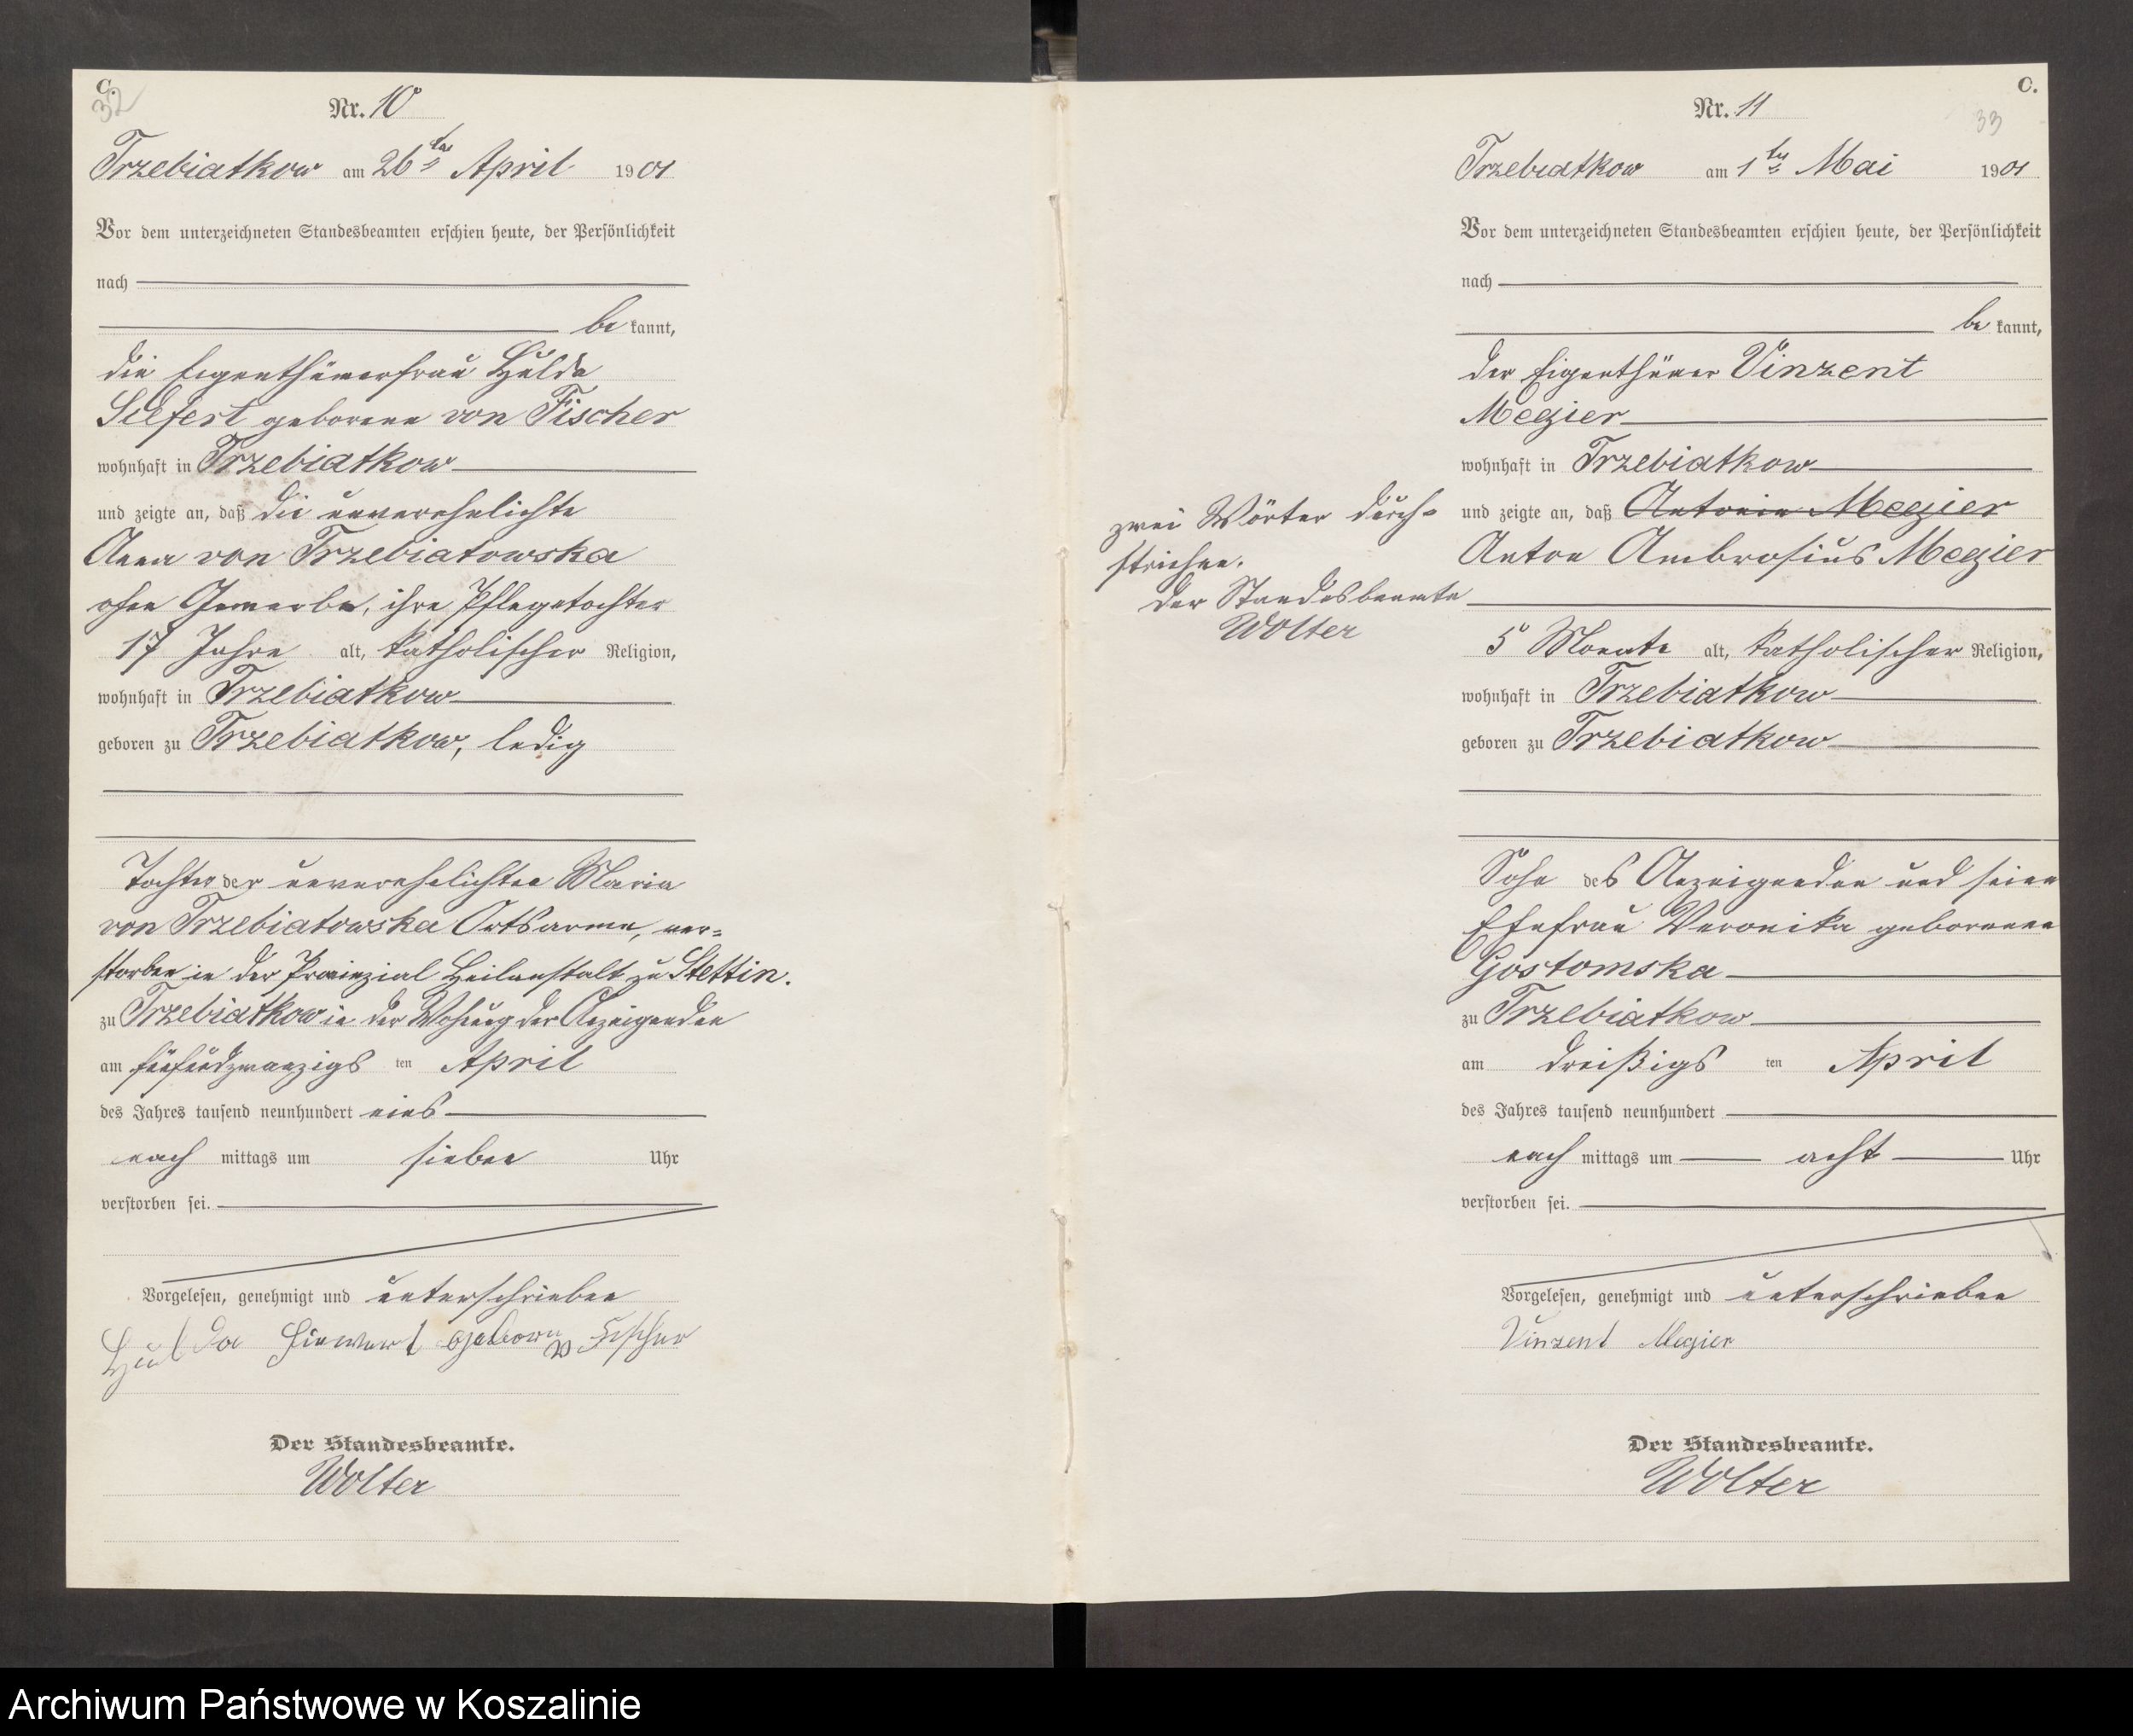 C.
32
Nr. 10
Trzebiatkow am 26ten April 1901
Vor dem unterzeichneten Standesbeamten erschien heute, der Persönlichkeit
nach
be kannt,
die Eigenthümerfrau Hulda
geborene von Fischer
wohnhaft in Trzebiatkow
und zeigte an, daß die unverehelichte
Anna von Trzebiatowska
ohne Gewerbe, ihre Pflegetochter
17 Jahre alt, katholischer Religion,
wohnhaft in Trzebiatkow
geboren zu Trzebiatkow, ledig
Tochter der unverehelichten Maria
von Trzebiatowska Ortsarme, ver=
storben in der Provinzial Heilanstalt zu Stettin.
zu Trzebiatkow in der Wohnung der Anzeigenden
am fünfundzwanzigs ten April
des Jahres tausend neunhundert eins
nach mittags um sieben Uhr
verstorben sei.
Vorgelesen, genehmigt und unterschrieben
Hulda geborn v Fischer
Der Standesbeamte.
Wolter
C.
33
Nr. 11
Trzebiatkow am 1ten Mai 1901
Vor dem unterzeichneten Standesbeamten erschien heute, der Persönlichkeit
nach
be kannt,
der Eigenthümer Vinzent
Megier
wohnhaft in Trzebiatkow
und zeigte an, daß Antonin Megier
Anton Ambrosius Megier
zwei Wörter durch=
strichen.
Der Standesbeamte
Wolter
5 Monate alt, katholischer Religion,
wohnhaft in Trzebiatkow
geboren zu Trzebiatkow
Sohn des Anzeigenden und seiner
Ehefrau Veronika geborenen
Gostomska
zu Trzebiatkow
am dreißigs ten April
des Jahres tausend neunhundert
nach mittags um acht Uhr
verstorben sei.
Vorgelesen, genehmigt und unterschrieben
Vinzent Megier
Der Standesbeamte.
Wolter
Archiwum Państwowe w Koszalinie